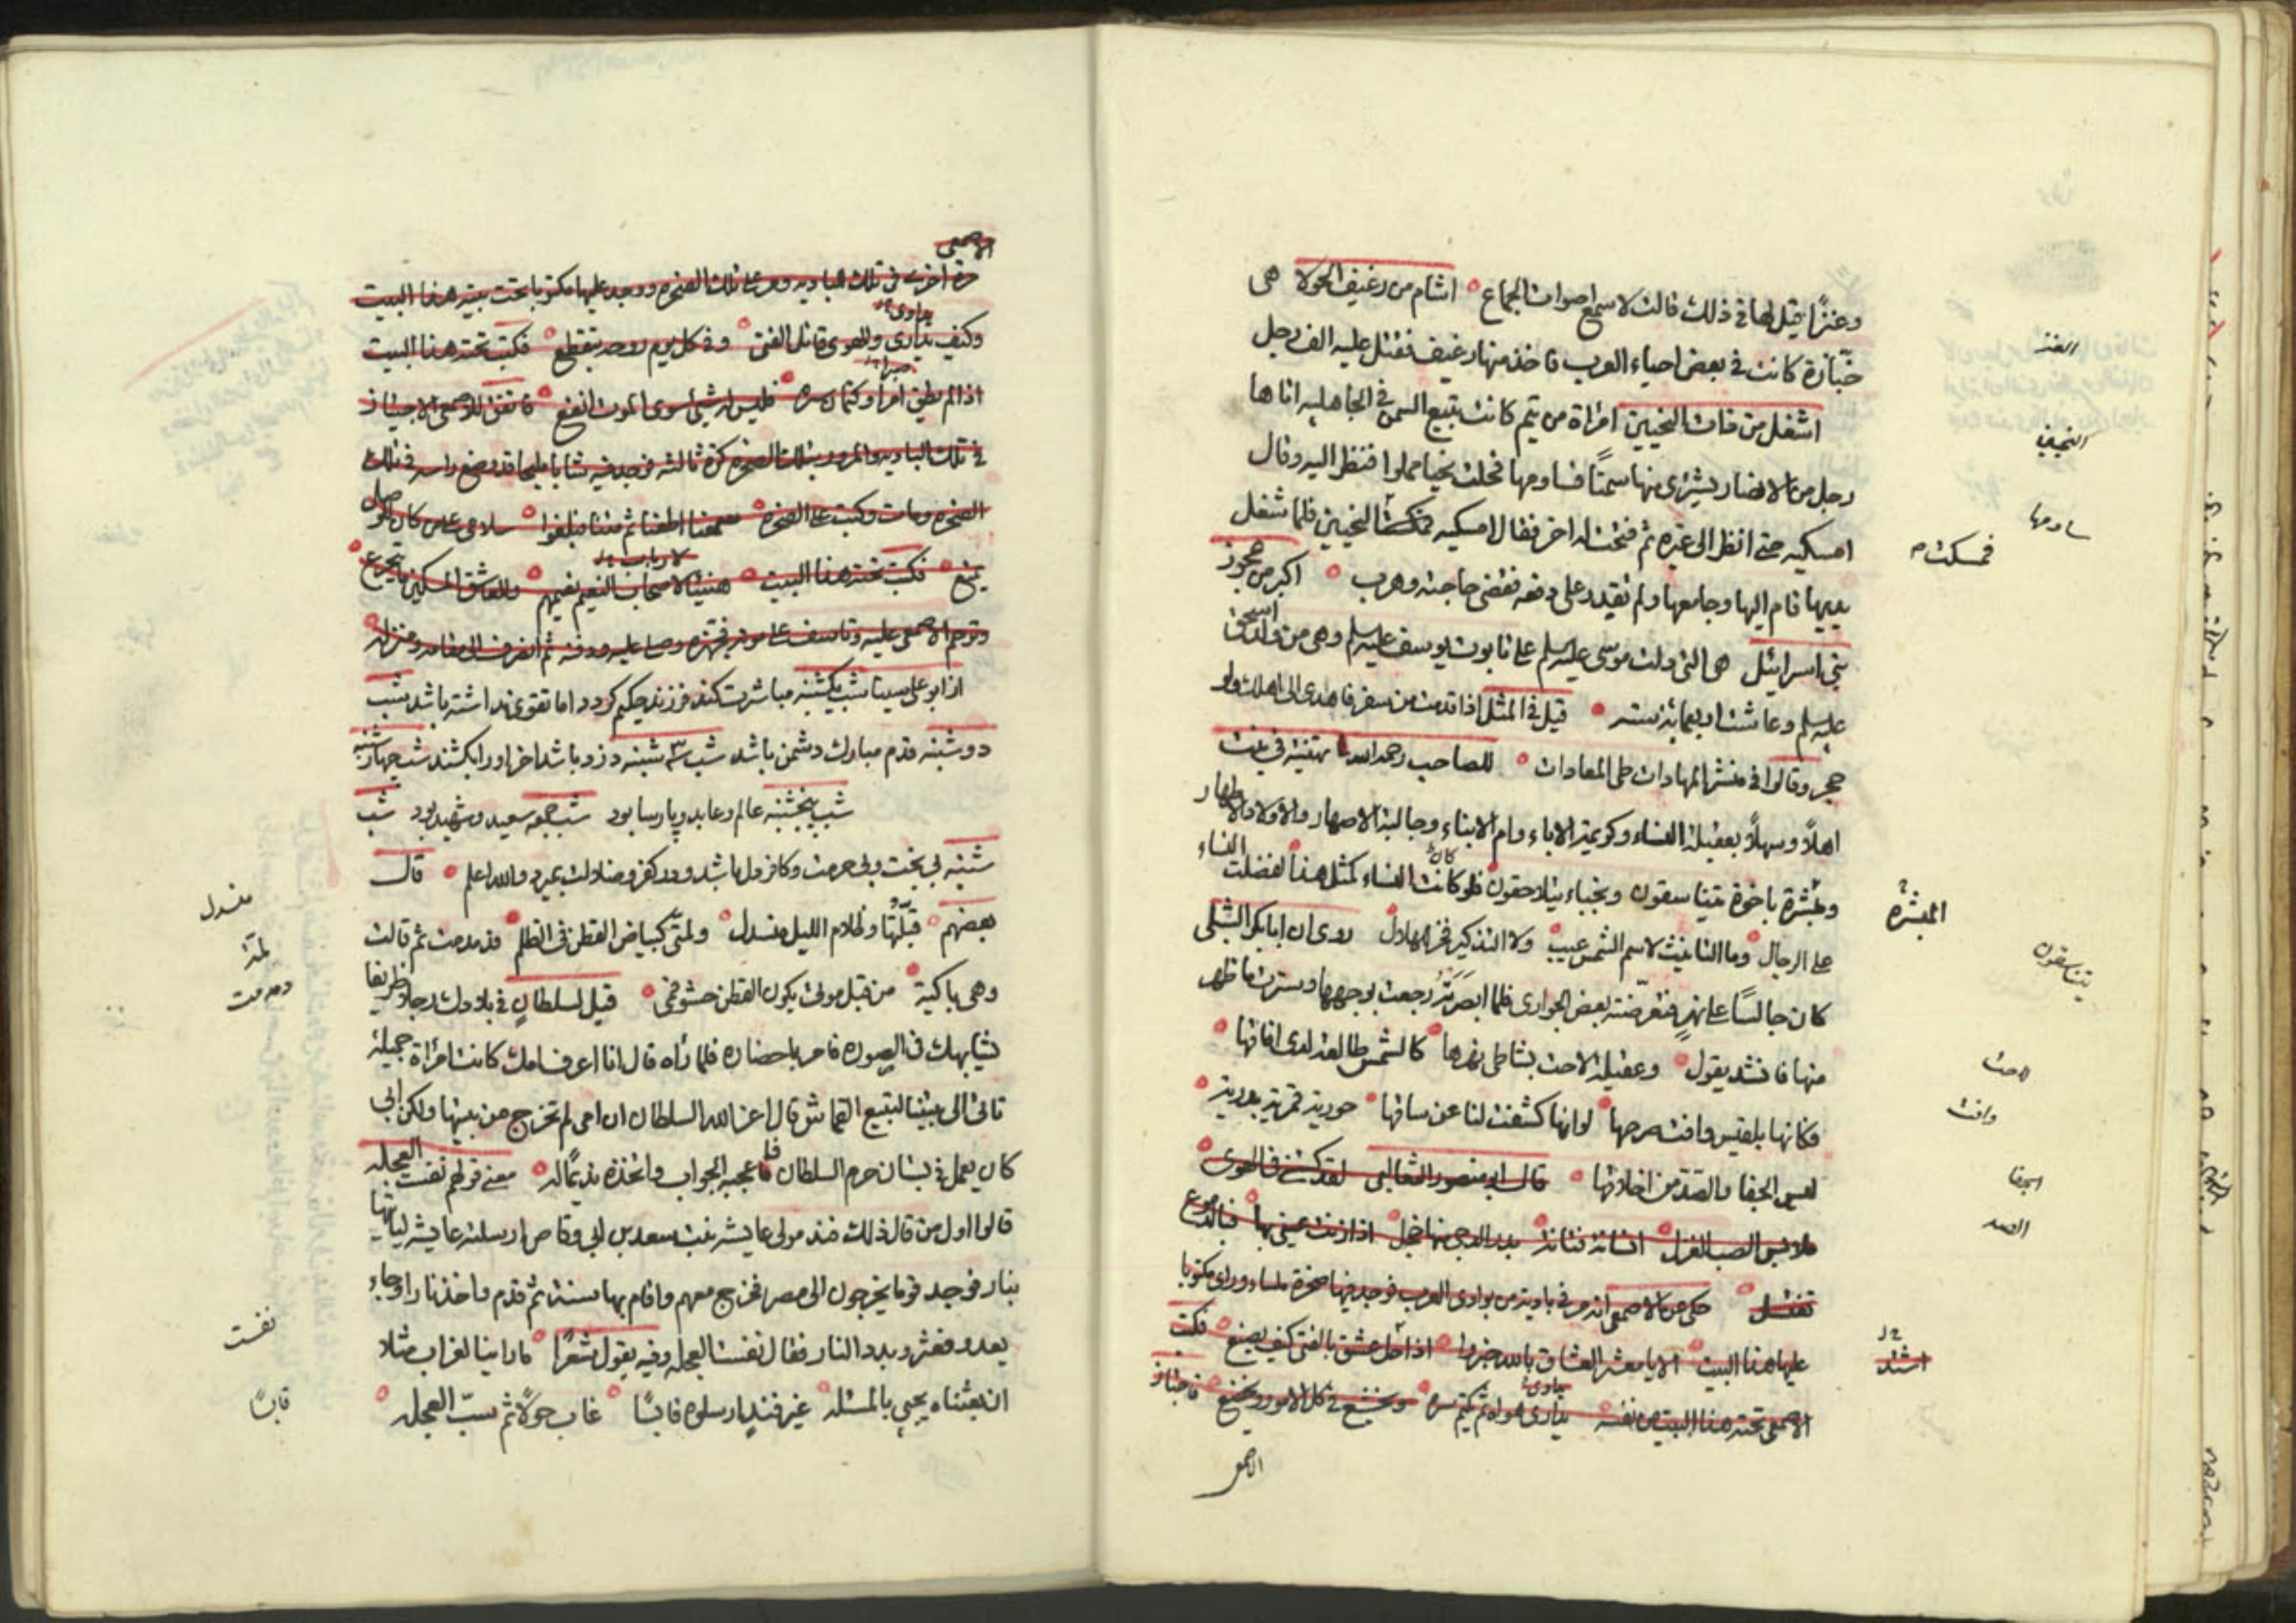 وعنزًا قيل لها في ذلك قالت لاسمع اصوات الجماع اشام من رغيف الحولا هى
خبّازة كانت في بعض احياء العرب فاخذ منها رغيف فقتل عليه الف رجل
اشغل من ذات النحيين امراة من تيم كانت تبيع السمن في الجاهليه اتاها
رجل من الانصار يشترى منها سمنًا فساومها فحلت نحيا مملوا فنظر اليه وقال
امسكيه حتى انظر الى غيره ثم فتحت له اخر فقال امسكيه فمسكت النحيين فلما شغل
يديها قام اليها وجامعها ولم تقدر على دفعه فقضى حاجته وهرب اكبر من عجوز
بنى اسرائيل هى التى دلت موسى عليه سلم على تابوت يوسف عليه سلم وهى من ولد اسحق
عليه سلم وعاشت اربعمائة سنه قيل في المثل اذا قدمت من سفر فاهدى الى اهلك ولو
حجر وقالوا في منشر المهادات طى المعادات للصاحب رحمه الله تهنيئة في بنت
اهلًا وسهلًا بعقيلة النساء وكريمة الاباء وام الابناء وجالبة الاصهار والاولاد الاطهار
ومبشرة باخوة يتناسقون ونجباء يتلاحقون فلو كان النساء كمثل هذا لفضلت النساء
على الرجال وما التانيث لاسم الشمس عيب ولا التذكير فخر للهلال روى ان ابا بكر الشبلى
كان جالسًا على نهر فتعرّضته بعض الجوارى فلما ابصرته رجعت بوجهها وسترت ما ظهر
منها فانشد يقول وعقيلة لاحت بشاطى نهرها كالشمس طالعة لدى افاقها
فكانها بلقيس وافت صرحها لو انها كشفت لنا عن ساقها حورية قمرية بدرية
ليس الجفا والصد من اخلاقها قال ابو منصور الثعالبى لقد كستنى في الهوى
ملابس الصب الغزل انسانة فتانة بدر الدجى منها خجل اذا زنت عينى بها فبالدموع
تغتسل حكى عن الاصمعى انه مر في بادية من بوادى العرب فوجد فيها صخرة ملساء وراى مكتوبا
عليها هذا البيت الا يا معشر العشاق بالله خبروا اذا حل عشق بالفتى كيف يصنع فكتب
الاصمعى تحته هذا البيت من نفسه يدارى هواه ثم يكتم سره ويخشع في كل الامور ويخضع فاجتاز
الاصمعى
العنز
النحيين
ساومها
فمسكت
المبشرة
يتناسقون
لاحت
وافت
الجفا
الصد
اشتد
الاصمعى
مرة اخرى في تلك الباديه ومر على تلك الصخره ووجد عليها مكتوبا تحت بيته هذا البيت
وكيف يدارى والهوى قاتل الفتى وفي كل يوم روحه يتقطع فكتب تحته هذا البيت
اذا لم يطق امرا وكتمان سره فليس له شيئا سوى الموت انفع فاتفق للاصمعى الاجتياز
في تلك الباديه والمرور بتلك الصخره كرة ثالثه فوجد فيه شابا مليحا قد وضع راسه في تلك
الصخره ومات وكتب على الصخره سمعنا اطعنا ثم متنا فبلغوا سلامى على من كان للوصل
يمنع فكتب تحته هذا البيت هنيئا لاصحاب النعيم نعيمهم وللعاشق المسكين ما يتجرع
وترحم الاصمعى عليه وتاسف على موته فجهزه وصلى عليه ودفنه ثم انصرف الى مقامه ومنزله
از ابو على سينا شب يكشنبه مباشرت كند فرزند حكيم كردد اما تقوى نداشته باشد شب
دوشنبه قدم مبارك دشمن باشد شب سه شنبه دزد باشد اخر اورا بكشند شب چهارشنبه
شب پنجشنبه عالم وعابد وپارسا بود شب جمعه سعيد وشهيد بود شب
شنبه بى بخت وبى حرمت وكافر دل باشد ودر كفر وضلالت بميرد والله اعلم قال
بعضهم قبّلتُها وظلام الليل منسدل ولمتى كبياض القطن في الظلم فدمدمت ثم قالت
وهى باكية من قبل موتى يكون القطن حشو فمى قيل لسلطان في بلادك رجلا ظريفا
يشابهك في الصوره فامر باحضاره فلما رآه قال انا اعرف امك كانت امراة جميلة
تاتى الى بيتنا لبيع القماش قال اعز الله السلطان ان امى لم تخرج من بيتها ولكن ابى
كان يعمل في بستان حرم السلطان فاعجبه الجواب واتخذه نديمًا له معنى قولهم تعست العجله
قالوا اول من قال ذلك فند مولى عايشه بنت سعد بن ابى وقاص ارسلته عايشه لياتيها
بنار فوجد قوما يخرجون الى مصر فخرج معهم واقام بها سنة ثم قدم واخذ نارا وجاء
يعدو فعثر وبدد النار فقال تعست العجله وفيه يقول شعرًا ما راينا لغراب مثلا
اذ بعثناه يجيى بالمشمله غير فند ارسلوه قابسًا غاب حولًا ثم سبّ العجله
منسدل
لمتى
دمدمت
تعست
قابسًا